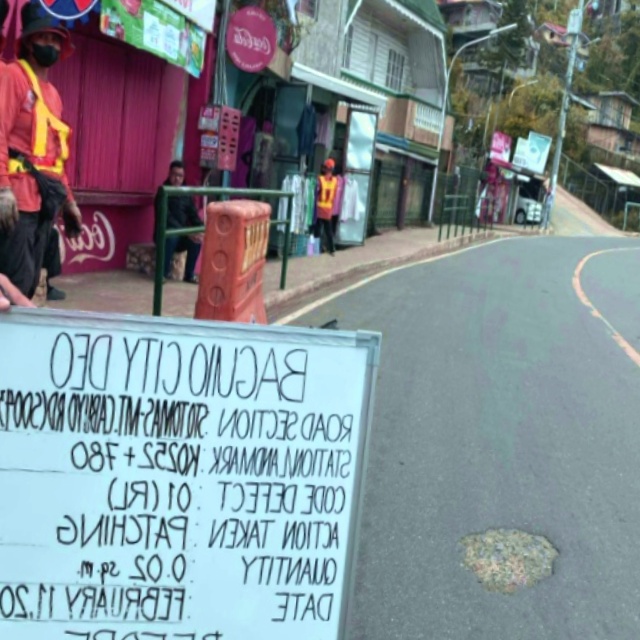 Coca-Cola
Coca-Cola
BAGUIO CITY DEO
ROAD SECTION : STO TOMAS-MT. CABUYO RD
STATION/LANDMARK : K0252+780
CODE DEFECT : 01 (RL)
ACTION TAKEN : PATCHING
QUANTITY : 0.02 sq.m.
DATE : FEBRUARY 11, 20
BEFORE